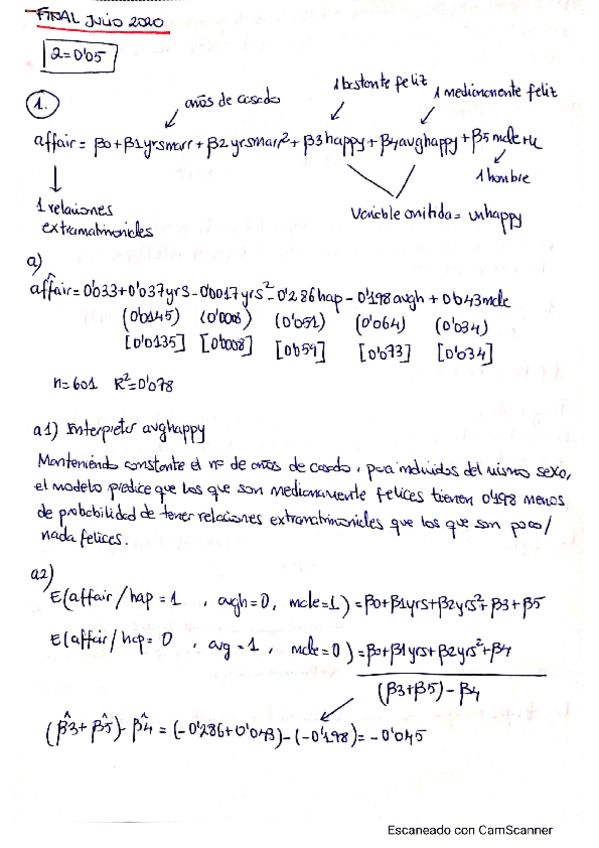 FINAL JULIO 2020
2=0'05
1.
años de casado
1 bastante feliz
1 medianamente feliz
affair = β0+β1yrsmarr+β2yrsmarr²+β3happy+β4avghappy+β5male+u
1 hombre
1 relaciones
extramatrimoniales
Variable omitida = unhappy
a)
affair=0'033+0'037yrs-0'0017yrs²-0'286hap-0'198avgh+0'043male
(0'0145) (0'008) (0'051) (0'064) (0'034)
[0'0135] [0'0008] [0'059] [0'073] [0'034]
n=601 R²=0'078
a1) Interpretar avghappy
Manteniendo constante el nº de años de casado, para individuos del mismo sexo,
el modelo predice que los que son medianamente felices tienen 0'198 menos
de probabilidad de tener relaciones extramatrimoniales que los que son poco/
nada felices.
a2)
E(affair/hap=1, avgh=0, male=1)=β0+β1yrs+β2yrs²+β3+β5
E(affair/hap=0, avg=1, male=0)=β0+β1yrs+β2yrs²+β4
(β3+β5)-β4
(β̂3+β̂5)-β̂4=(-0'286+0'043)-(-0'198)=-0'045
Escaneado con CamScanner